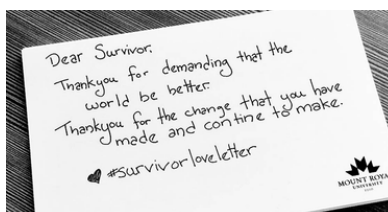 Dear Survivor,
Thankyou for demanding that the
world be better.
Thankyou for the change that you have
made and contine to make.
#survivorloveletter
MOUNT ROYAL
UNIVERSITY